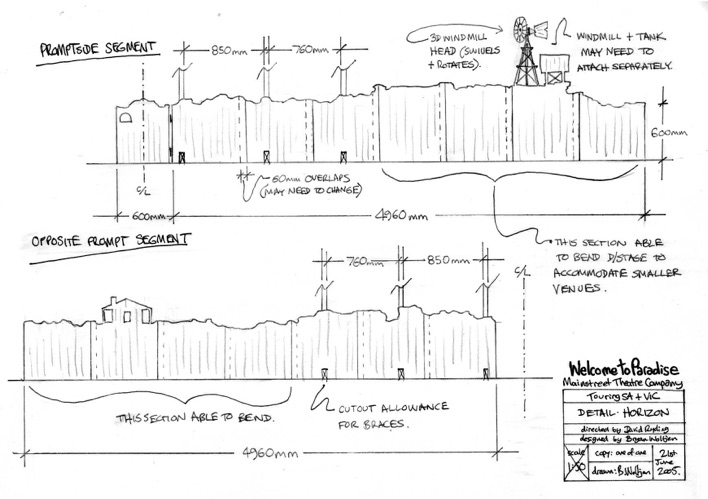 PROMPTSIDE SEGMENT
850mm
760mm
3D WINDMILL
HEAD (SWIVELS
+ ROTATES).
WINDMILL + TANK
MAY NEED TO
ATTACH SEPARATELY.
600mm
C/L
60mm OVERLAPS
(MAY NEED TO CHANGE)
600mm
4960mm
THIS SECTION ABLE
TO BEND D/STAGE TO
ACCOMMODATE SMALLER
VENUES.
OPPOSITE PROMPT SEGMENT
760mm
850mm
C/L
THIS SECTION ABLE TO BEND.
CUTOUT ALLOWANCE
FOR BRACES.
4960mm
Welcome to Paradise
Mainstreet Theatre Company
Touring SA + VIC
DETAIL · HORIZON
directed by David
designed by
scale
1:50
copy: one of one
drawn: B.
21st
June
2005.